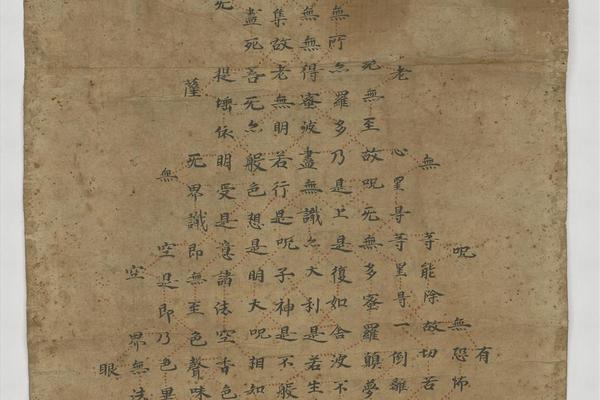 有
呪無恐怖
無等能除故切苦
老心罣㝵等罣㝵一倒離
死無至故呪死無多蜜羅顛夢
無所亦羅多乃是上是復如舍波不
無無得蜜波盡無識亦大利是若生
集故老無明若行是呪子神是不般
盡死菩死亦般色想是明大呪相如
提埵依明受是意諸法空香色
薩死界識即無至色聲味
無空是即乃色異
空界無法
眼